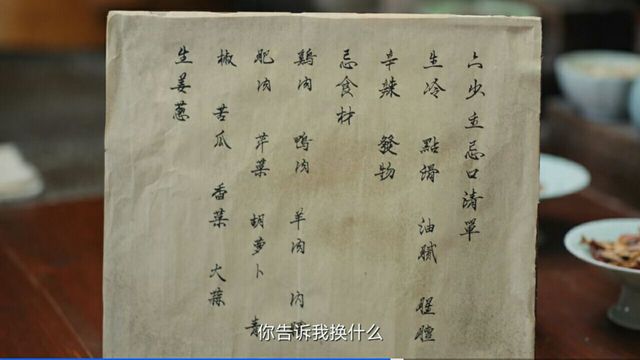 六少主忌口清單
生冷 點滑 油膩 腥膻
辛辣 發物
忌食材
鷄肉 鴨肉 羊肉 肉
肥肉 芹菜 胡萝卜 青
椒 苦瓜 香菜 大蒜
生姜葱
你告诉我换什么